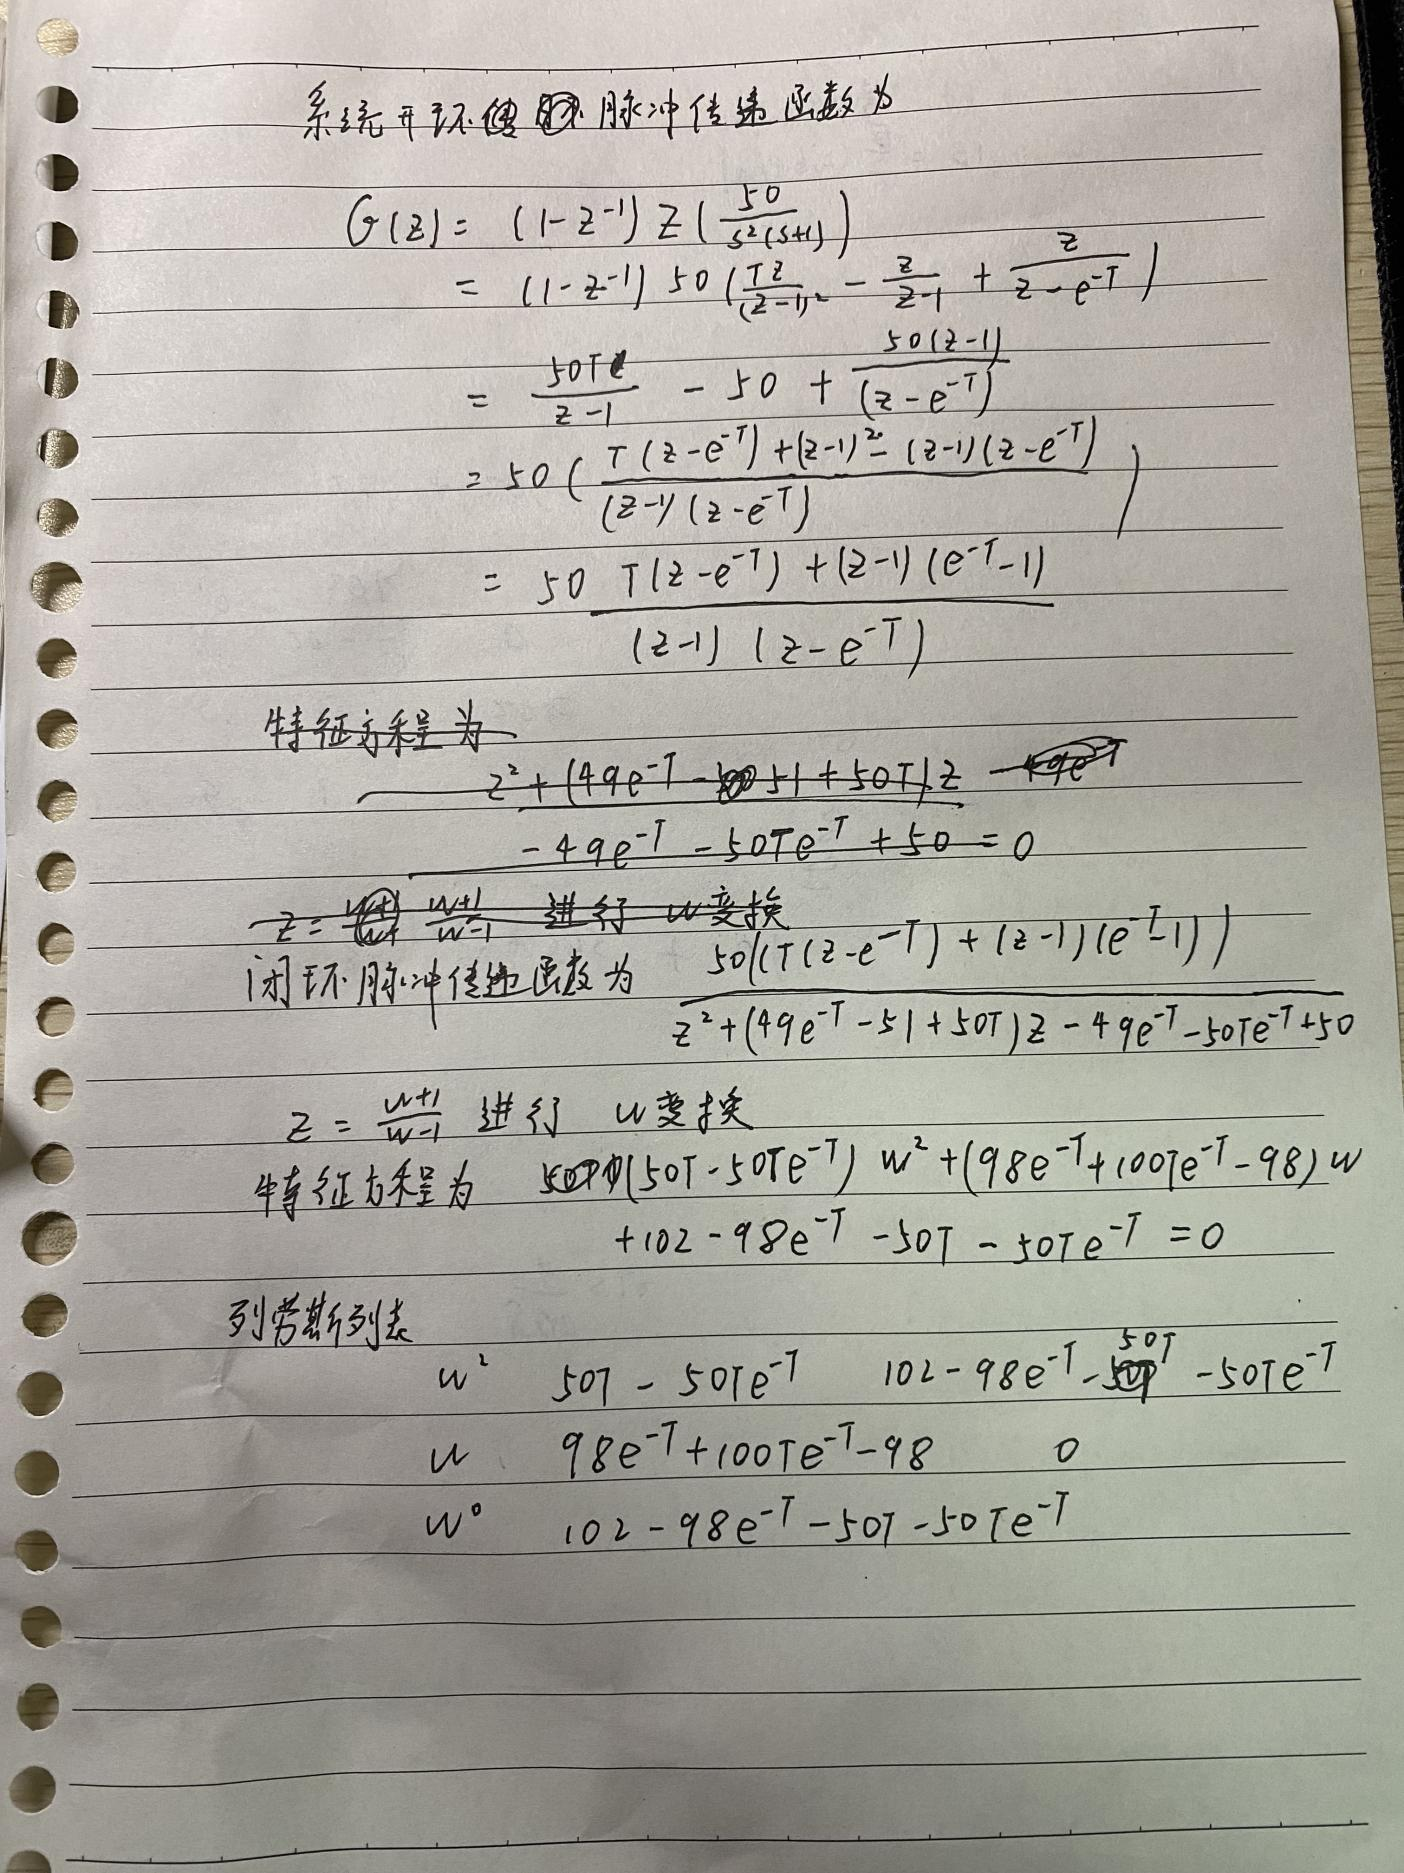 系统开环脉冲传递函数为
G(z) = (1-z⁻¹) Z(50/(s²(s+1)))
= (1-z⁻¹) 50 (Tz/(z-1)² - z/(z-1) + z/(z-e^-T))
= 50T/(z-1) - 50 + 50(z-1)/(z-e^-T)
= 50 ( (T(z-e^-T)+(z-1)²-(z-1)(z-e^-T))/((z-1)(z-e^-T)) )
= 50 (T(z-e^-T)+(z-1)(e^-T-1))/((z-1)(z-e^-T))
特征方程为
z²+(49e^-T - 51+50T)z
-49e^-T - 50Te^-T +50 = 0
z = (w+1)/(w-1) 进行 w变换
闭环脉冲传递函数为 50((T(z-e^-T)+(z-1)(e^-T-1))/(z²+(49e^-T-51+50T)z-49e^-T-50Te^-T+50)
z = (w+1)/(w-1) 进行 w变换
特征方程为 (50T-50Te^-T) w²+(98e^-T+100Te^-T-98)w
+102-98e^-T-50T-50Te^-T=0
列劳斯列表
w² 50T-50Te^-T 102-98e^-T-50T-50Te^-T
w 98e^-T+100Te^-T-98 0
w⁰ 102-98e^-T-50T-50Te^-T